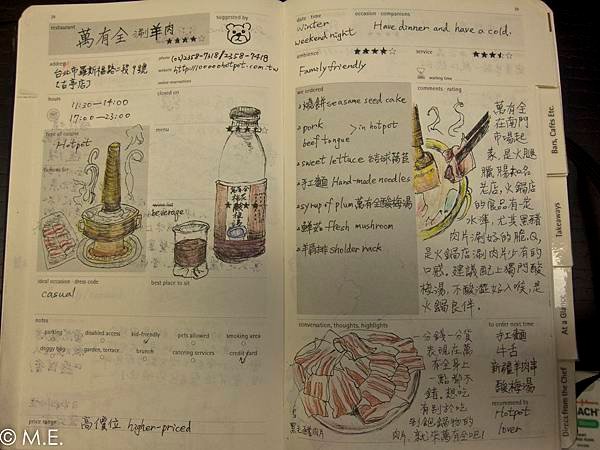 restaurant
萬有全 涮羊肉
★★★★☆
suggested by
address
台北市羅斯福路二段9號
【古亭店】
phone (02)2358-7418/2358-7418
website http://10000hotpot.com.tw
online reservations
hours
11:30-14:00
17:00-23:00
closed on
type of cuisine
Hotpot
famous for
menu
★★★★☆
wine list
beverage
ideal occasion · dress code
casual
best place to sit
notes
parking
disabled access
kid-friendly
pets allowed
smoking area
doggy bag
garden, terrace
brunch
catering services
credit card
price range
高價位 higher-priced
date · time
winter
weekend night
occasion · companions
Have dinner and have a cold.
ambience
★★★★☆
Family friendly
service
★★★★☆
waiting time
we ordered
燒餅 seasame seed cake
pork
beef tongue
> in hotpot
sweet lettace 結球萵苣
手工麵 Hand-made noodles
syrup of plum 萬有全酸梅湯
鮮菇 Flesh mushroom
羊肩排 sholder rack
comments · rating
萬有全
在南門
市場起
家,是火腿
臘腸知名
老店,火鍋店
的食品有一定
水準,尤其黑豬
肉片涮好的脆、Q,
是火鍋店涮肉片少有的
口感,建議配上獨門酸
梅湯,不酸澀好入喉,是
火鍋良伴。
conversation, thoughts, highlights
黑毛豬肉片
一分錢一分貨
表現在萬
有全身上
一點都不
錯,想吃
有別於吃
到飽鍋物的
肉片,就來萬有全吧!
to order next time
手工麵
牛舌
新疆羊肉串
酸梅湯
recommend to
Hotpot
lover
Bars, Cafés Etc.
Takeaways
At a Glance
Direct from the Chef
© M.E.